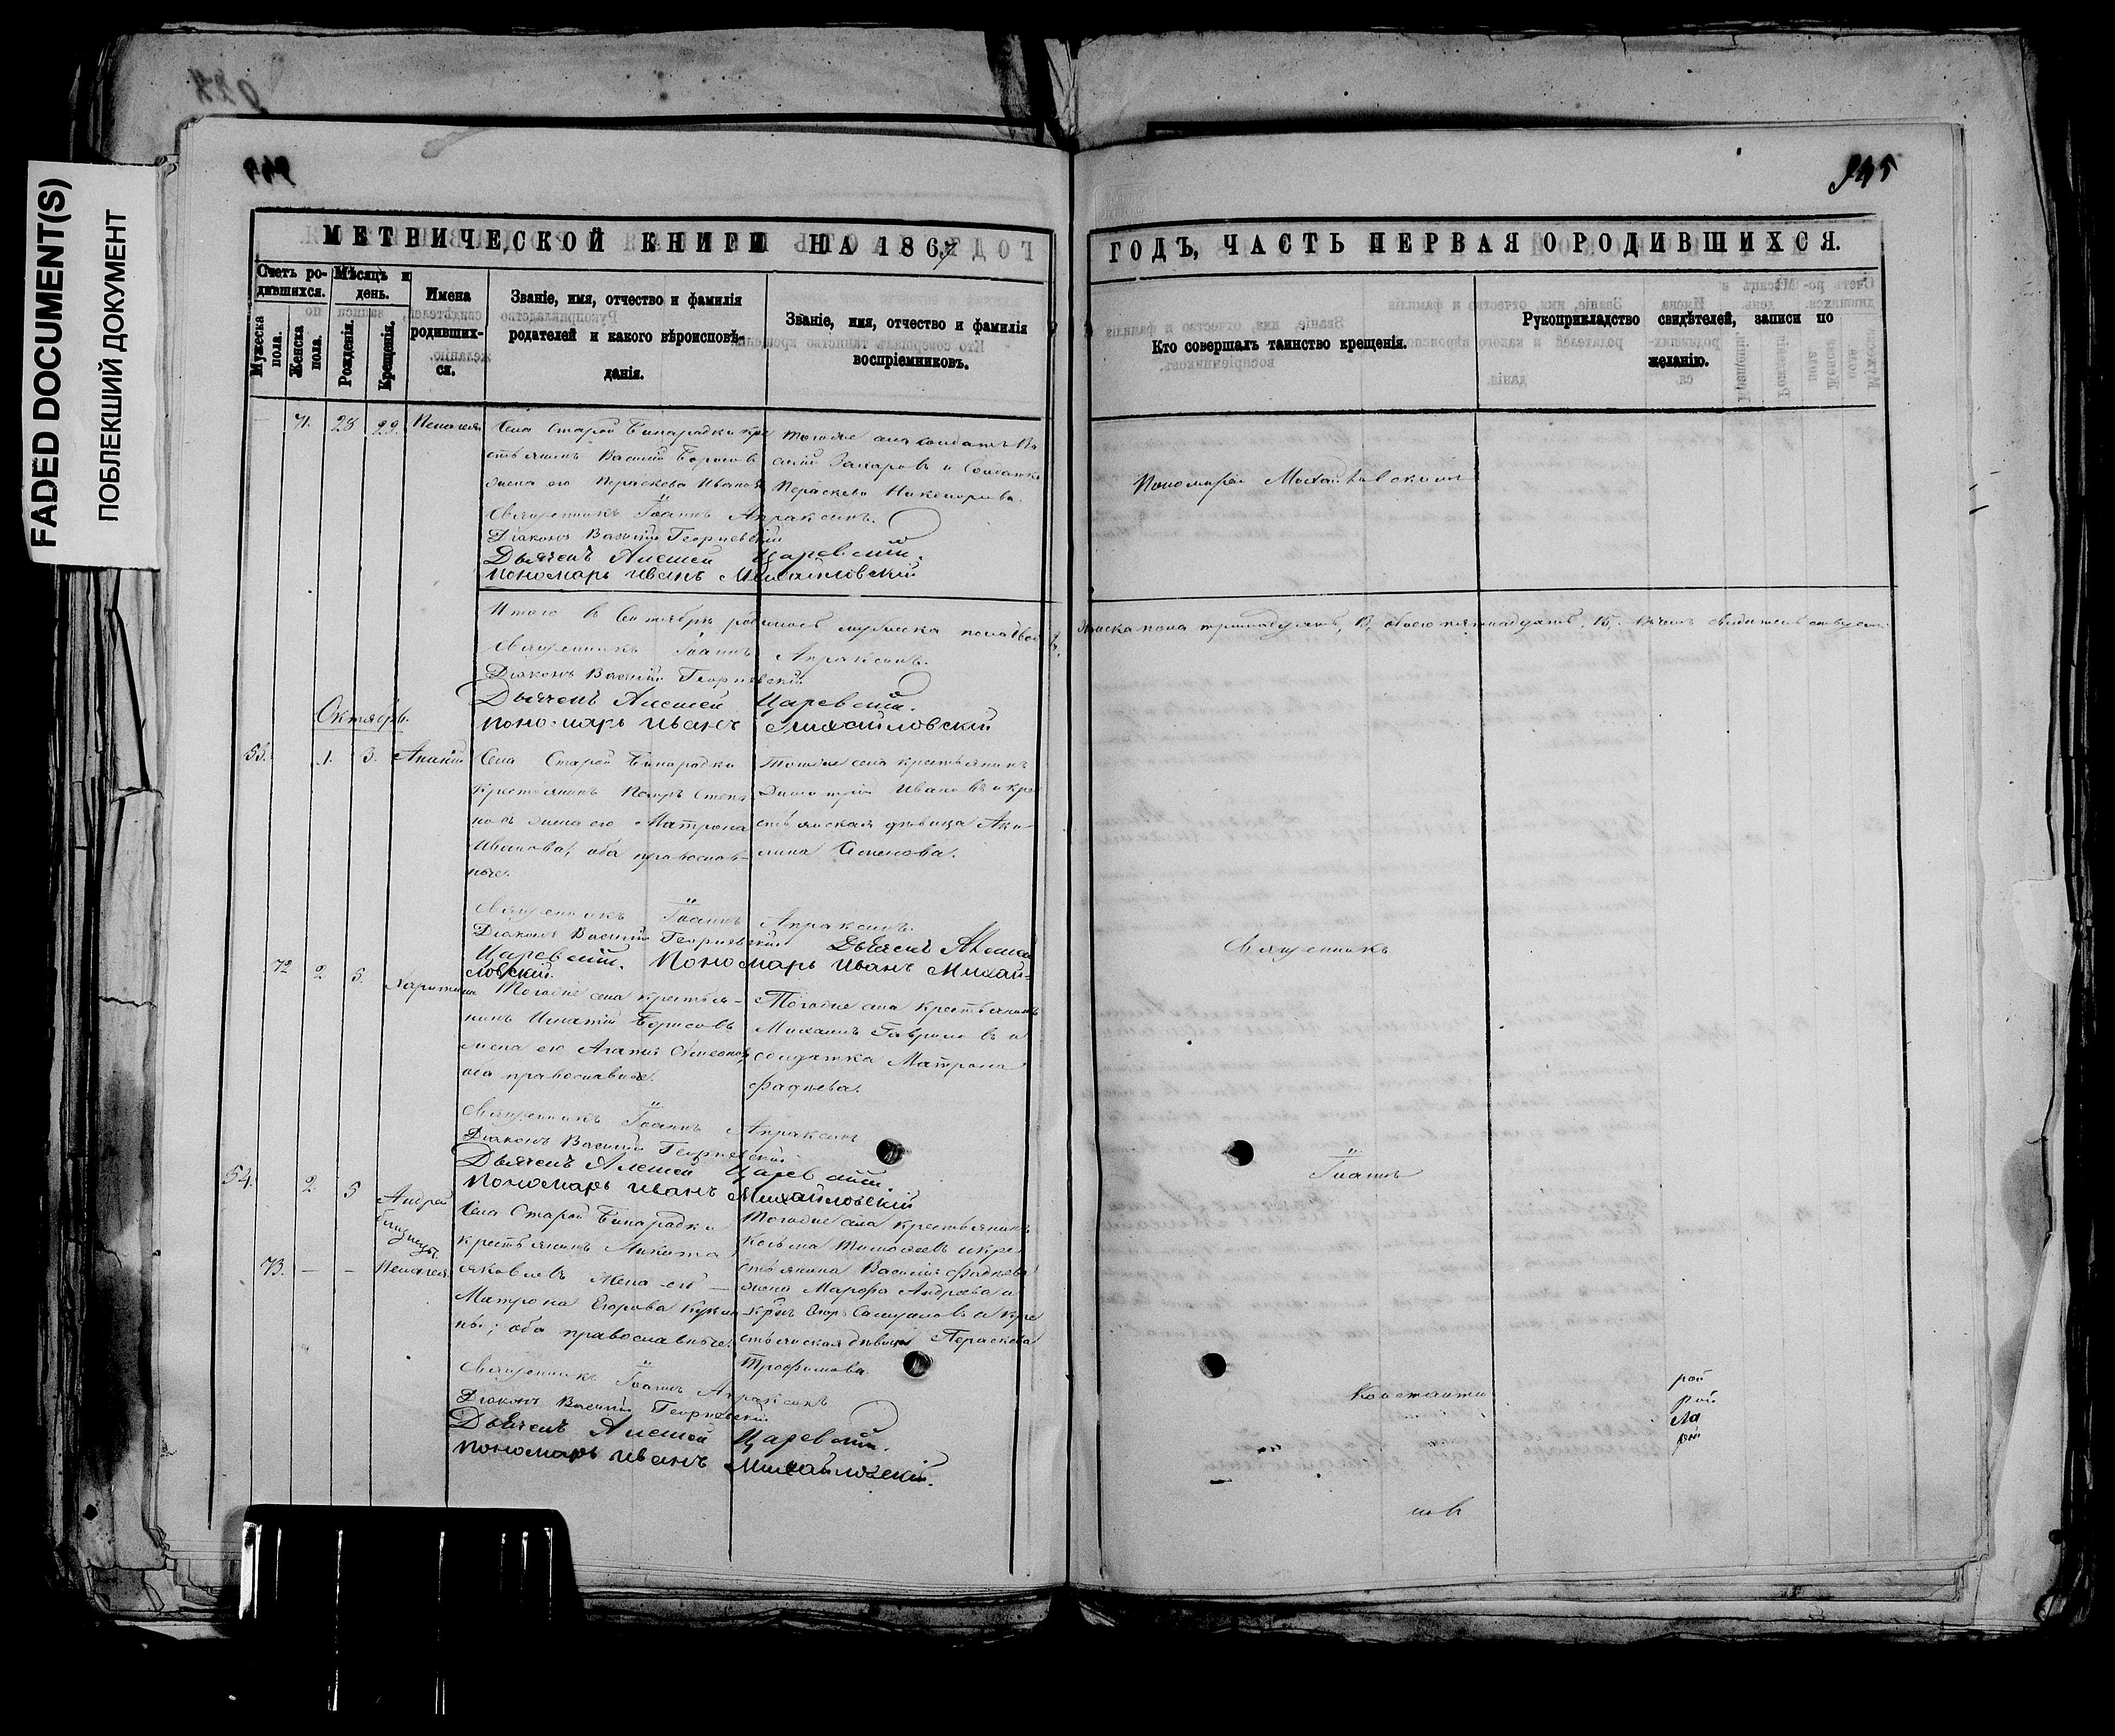 FADED DOCUMENT(S)
ПОБЛЕКШИЙ ДОКУМЕНТ
945
МЕТРИЧЕСКОЙ КНИГИ НА 1867
ГОДЪ, ЧАСТЬ ПЕРВАЯ О РОДИВШИХСЯ.
Счетъ ро-
дившихся.
Мужеска пола.
Женска пола.
Мѣсяцъ и
день.
Рожденія.
Крещенія.
Имена
родивших-
ся.
Званіе, имя, отчество и фамилія
родателей и какого вѣроисповѣ-
данія.
Званіе, имя, отчество и фамилія
воспріемниковъ.
Кто совершалъ таинство крещенія.
Рукоприкладство свидѣтелей, записи по
желанію.
71. 28 29. Пелагея
Села Старой Бинарадки кре
стьянинъ Василій Борисовъ
жена его Параскева Иванова
Тогоже села солдатъ Ва
силій Захаровъ и Солдатка
Параскева Никонорова.
Священникъ Іоаннъ Апраксинъ.
Діаконъ Василій Георгіевскій
Дьячекъ Алексей Царевскій.
Пономарь Иванъ Михайловскій
Итого въ Сентябрѣ родилось мужеска пола два 2,
женска пола тринадцать, 13, обоего пятнадцать, 15.
Священникъ Іоаннъ Апраксинъ.
Діаконъ Василій Георгіевскій
Дьячекъ Алексей Царевскій.
Пономарь Иванъ Михайловскій
Октябрь.
53. 1. 3. Ананій
Села Старой Бинарадки
Крестьянинъ Петръ Степа
новъ жена его Матрона
Иванова, оба православ-
ные.
Тогоже села крестьянинъ
Димитрій Ивановъ и кре
стьянская дѣвица Аку
лина Семенова.
Священникъ Іоаннъ Апраксинъ.
Діаконъ Василій Георгіевскій Дьячекъ Алексей
Царевскій. Пономарь Иванъ Михай-
ловскій.
Священникъ
72 2. 5. Харитина
Тогоже села крестья-
нинъ Игнатій Борисовъ
жена его Агапія Симеонова
оба православные.
Тогоже села Крестьянинъ
Михаилъ Гавриловъ и
солдатка Матрона
Фадѣева.
Священникъ Іоаннъ Апраксинъ
Діаконъ Василій Георгіевскій
Дьячекъ Алексей Царевскій.
Пономарь Иванъ Михайловскій
Іоаннъ
54. 2 5 Андрей
близнецы
73. — — Пелагея
Села Старой Бинарадки
крестьянинъ Никита
Яковлевъ Жена его —
Матрона Егорова
оба православные.
Тогоже села Крестьянинъ
Козьма Тимофеевъ и кре
стьянина Василія Фадѣева
жена Марфа Андреева и
и кре
стьянская дѣвица Параскева
Трофимова.
Священникъ Іоаннъ Апраксинъ
Діаконъ Василій Георгіевскій
Дьячекъ Алексей Царевскій.
Пономарь Иванъ Михайловскій.
рой
рой